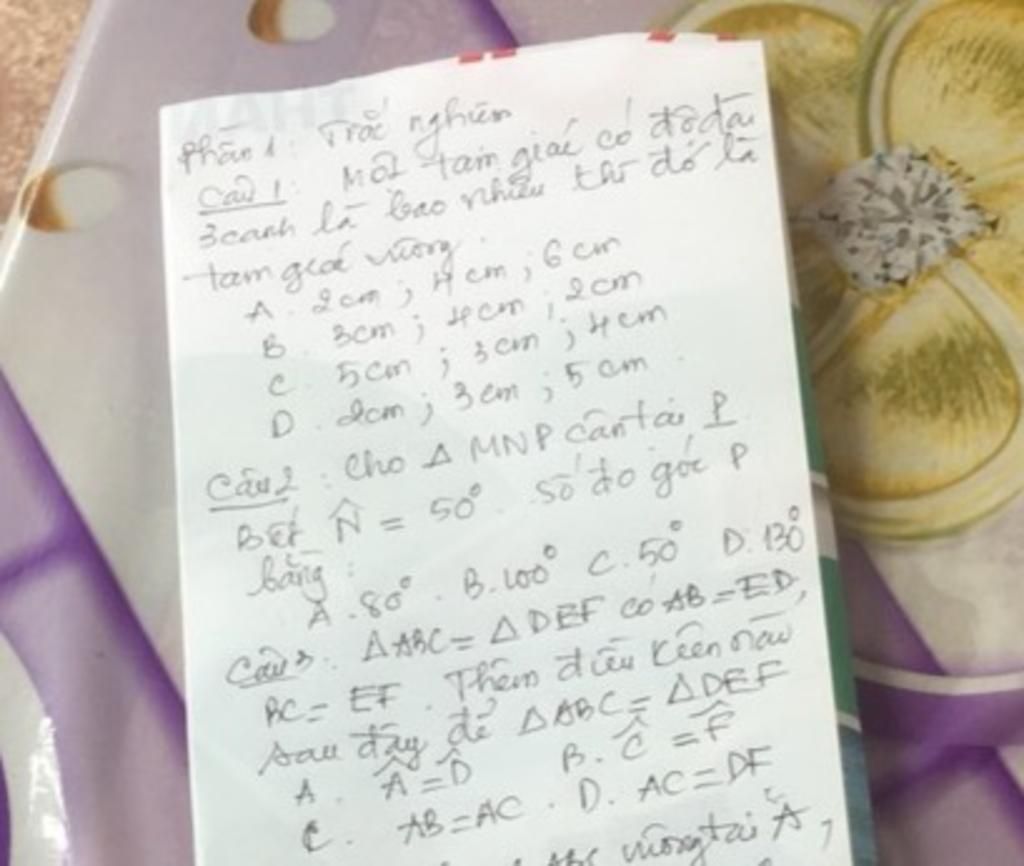 Phần 1: Trắc nghiệm
Câu 1: Một tam giác có độ dài
3 cạnh là bao nhiêu thì đó là
tam giác vuông.
A. 2cm; 4cm; 6cm
B. 3cm; 4cm; 2cm
C. 5cm; 3cm; 4cm
D. 2cm; 3cm; 5cm.
Câu 2: Cho Δ MNP cân tại P
Biết N̂ = 50°. Số đo góc P
bằng:
A. 80°. B. 100° C. 50° D. 130°
Câu 3: ΔABC = ΔDEF có AB = ED,
BC = EF. Thêm điều kiện nào
sau đây để ΔABC = ΔDEF
A. Â = D̂ B. Ĉ = F̂
C. AB = AC. D. AC = DF
ABC vuông tại A,